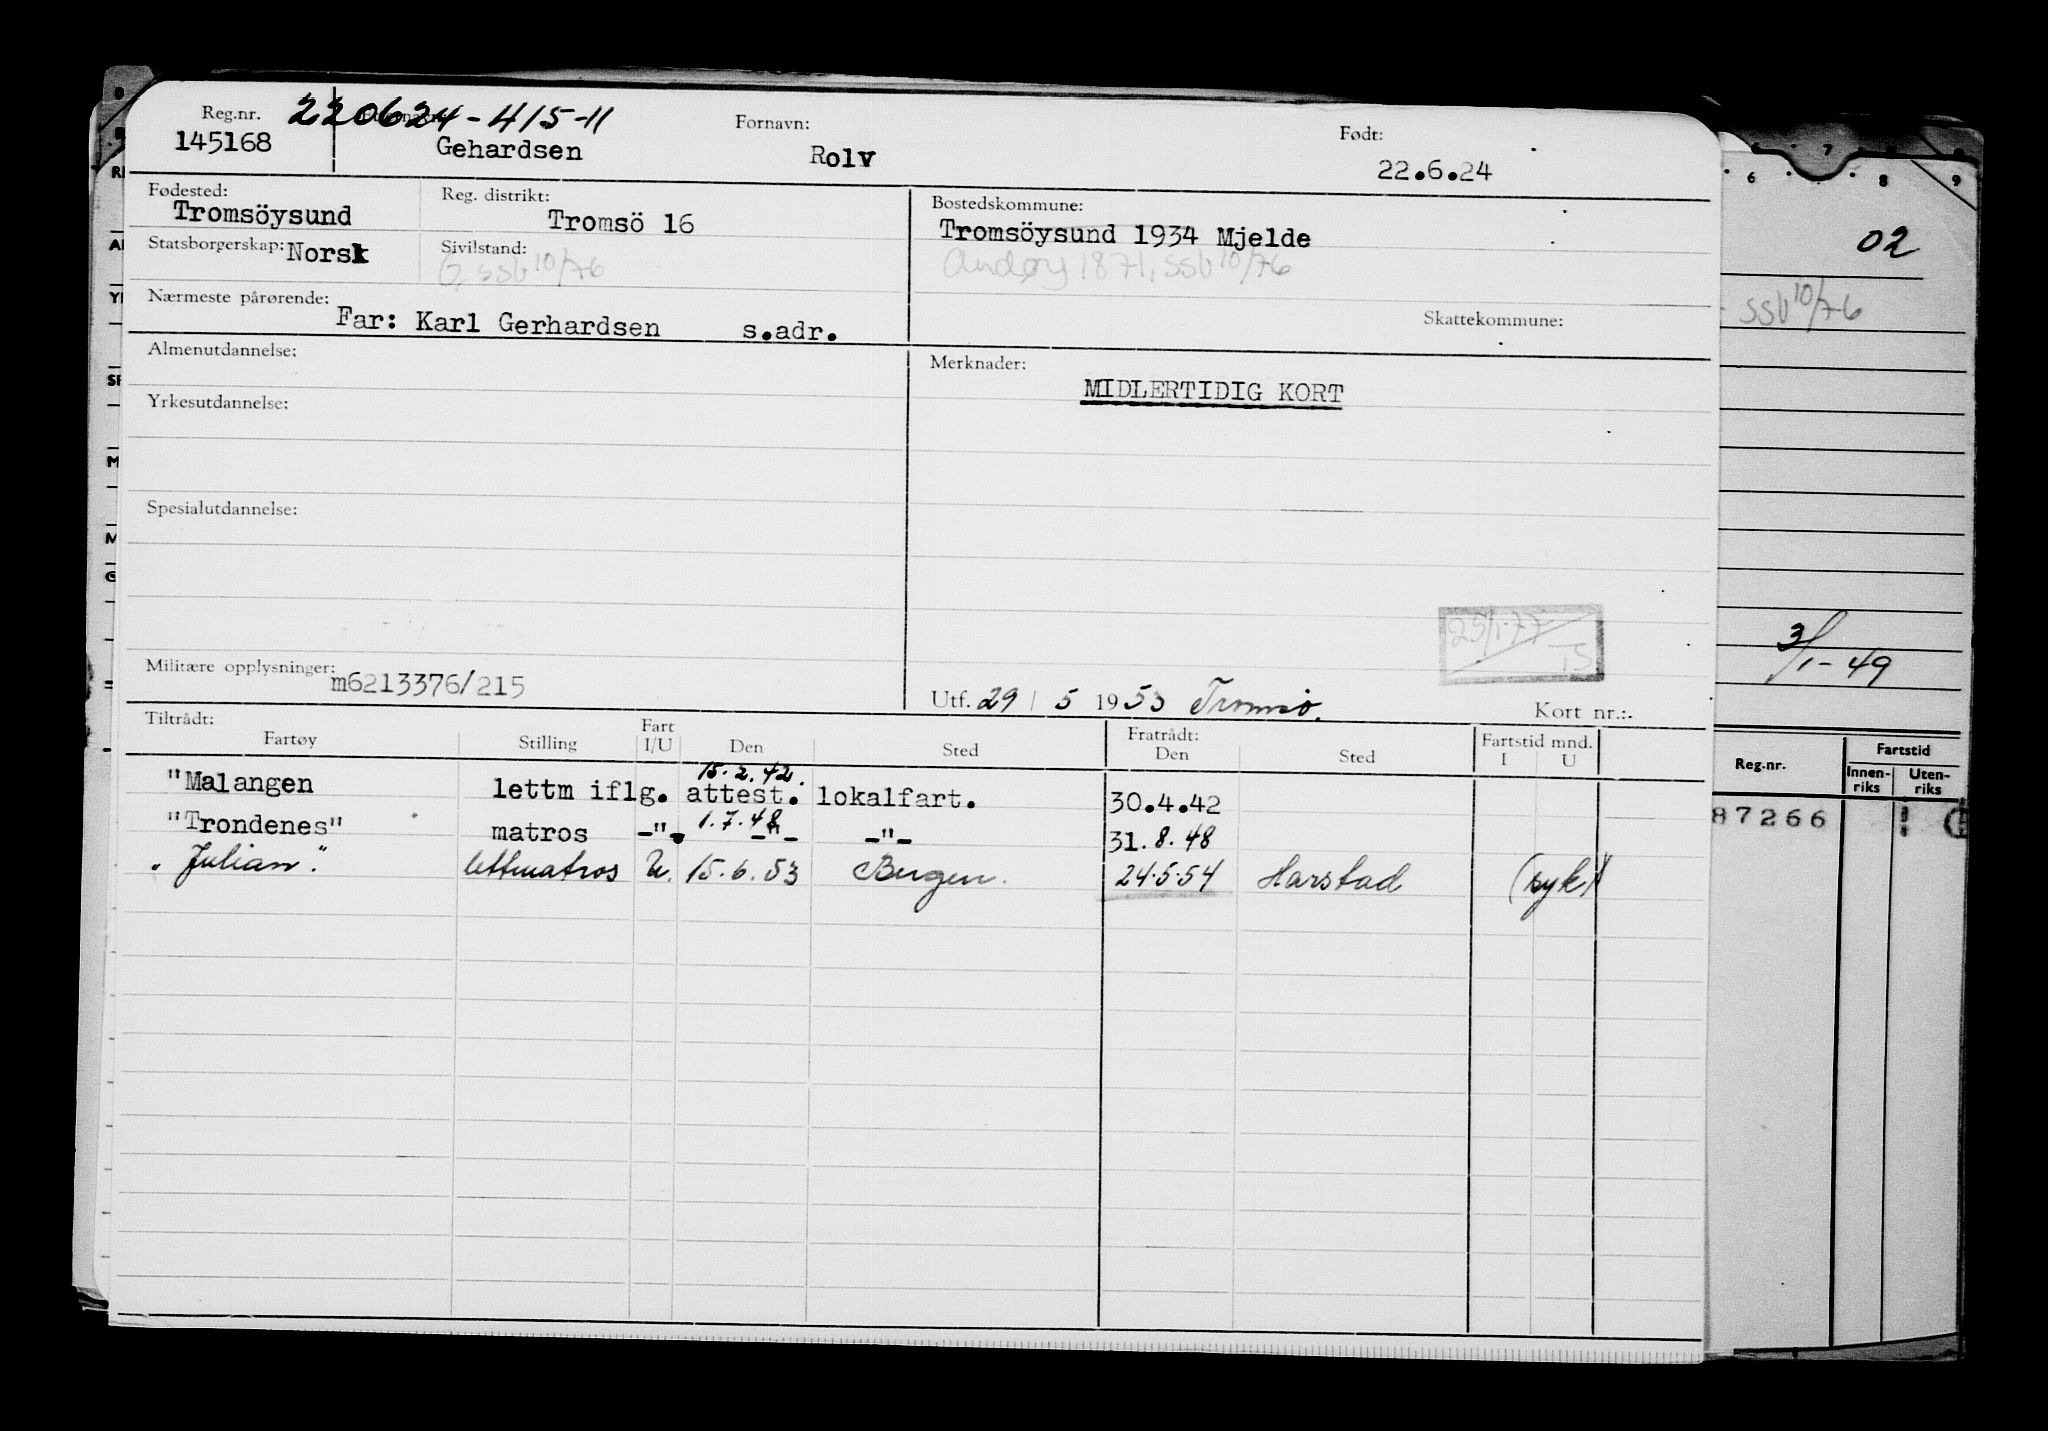 220624-415-11
Reg.nr. Fornavn: Født:
145168 Gehardsen Rolv 22.6.24
Fødested: Reg. distrikt: Bostedskommune:
Tromsöysund Tromsö 16 Tromsöysund 1934 Mjelde
Statsborgerskap: Norsk Sivilstand: G, ssb 10/76 Andøy 1871, ssb 10/76
Nærmeste pårørende: Far: Karl Gerhardsen s.adr. Skattekommune:
Almenutdannelse: Merknader:
MIDLERTIDIG KORT
Yrkesutdannelse:
Spesialutdannelse:
25/1-77 TS
Militære opplysninger: m6213376/215
Utf. 29 / 5 1953 Tromsö. Kort nr.:-
Tiltrådt: Fart Fratrådt: Fartstid mnd.
Fartøy Stilling I/U Den Sted Den Sted I U
15.2.42.
"Malangen lettm iflg. attest. lokalfart. 30.4.42
1.7.48
"Trondenes" matros -"- -"- -"- 31.8.48
"Julian". lettmatros U. 15.6.53 Bergen. 24.5.54 Harstad (syk)
6 7 8 9
02
ssb 10/76
3/1-49
Fartstid
Reg.nr. Innen-riks Uten-riks
87266